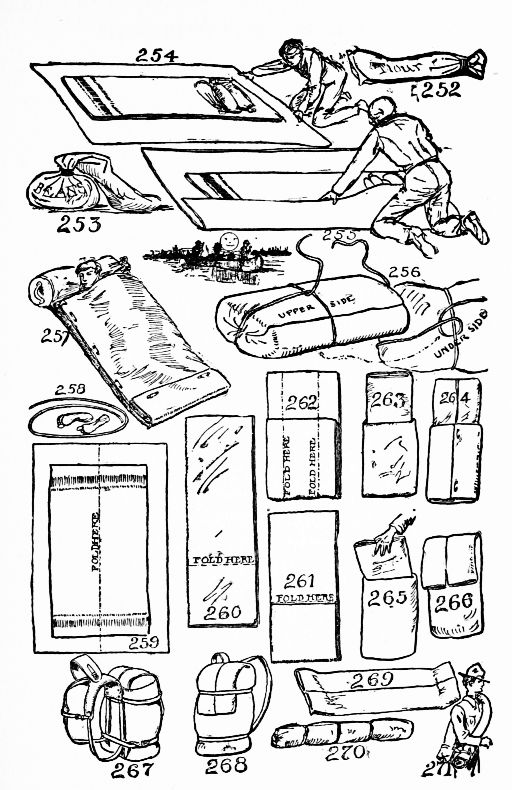 254
Flour
252
BEANS
253
255
256
UPPER SIDE
UNDER SIDE
257
258
262
263
264
FOLD HERE
FOLD HERE
FOLD HERE
FOLD HERE
260
261
FOLD HERE
265
266
259
269
267
268
270
271